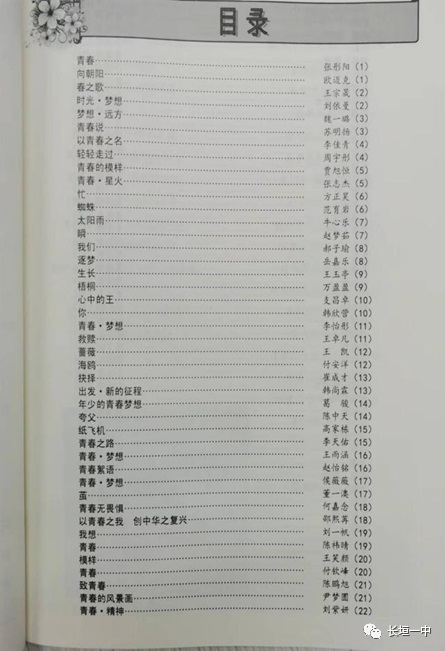 目录
青春 张彤阳（1）
向朝阳 欧迈克（1）
春之歌 王宗晟（2）
时光·梦想 刘依曼（2）
梦想·远方 魏一璐（3）
青春说 苏明扬（3）
以青春之名 李佳青（4）
轻轻走过 周宇彤（4）
青春的模样 贾旭恒（5）
青春·星火 张志杰（5）
忙 方正昊（6）
蜘蛛 范育岩（6）
太阳雨 牛心乐（7）
瞬 赵梦茹（7）
我们 郝子瑜（8）
逐梦 岳嘉乐（8）
生长 王玉亭（9）
梧桐 万盈盈（9）
心中的王 支昌卓（10）
你 韩欣营（10）
青春·梦想 李怡彤（11）
救赎 王卓凡（11）
蔷薇 王 凯（12）
海鸥 付安洋（12）
抉择 崔成才（13）
出发·新的征程 韩尚霖（13）
年少的青春梦想 葛 骏（14）
夸父 陈中天（14）
纸飞机 高家栋（15）
青春之路 李天佑（15）
青春·梦想 王雨涵（16）
青春絮语 赵怡铭（16）
青春·梦想 侯薇薇（17）
茧 董一澳（17）
青春无畏惧 何嘉念（18）
以青春之我 创中华之复兴 邵熙苒（18）
我想 刘一帆（19）
青春 陈祎晴（19）
模样 王笑颜（20）
青春 付钦峰（20）
致青春 陈鹏旭（21）
青春的风景画 尹梦圆（21）
青春·精神 刘紫妍（22）
长垣一中